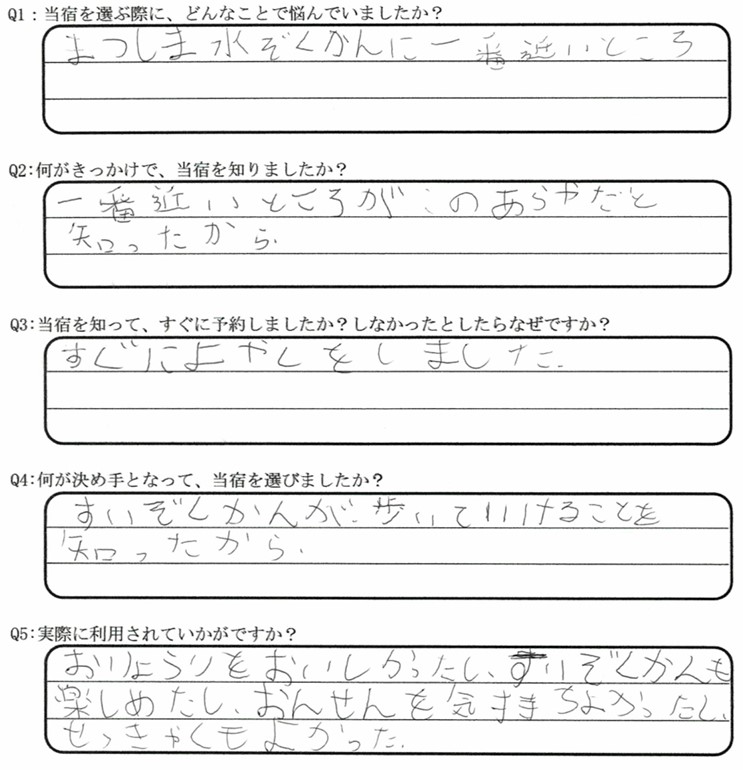 Q1：当宿を選ぶ際に、どんなことで悩んでいましたか？
まつしま水ぞくかんに一番近いところ
Q2:何がきっかけで、当宿を知りましたか？
一番近いところがこのあらやだと
知ったから.
Q3:当宿を知って、すぐに予約しましたか？しなかったとしたらなぜですか？
すぐによやくをしました.
Q4:何が決め手となって、当宿を選びましたか？
すいぞくかんが歩いていけることを
知ったから.
Q5:実際に利用されていかがですか？
おりょうりをおいしかったし、すいぞくかんも
楽しめたし、おんせんを気持ちよかったし、
せっきゃくもよかった.